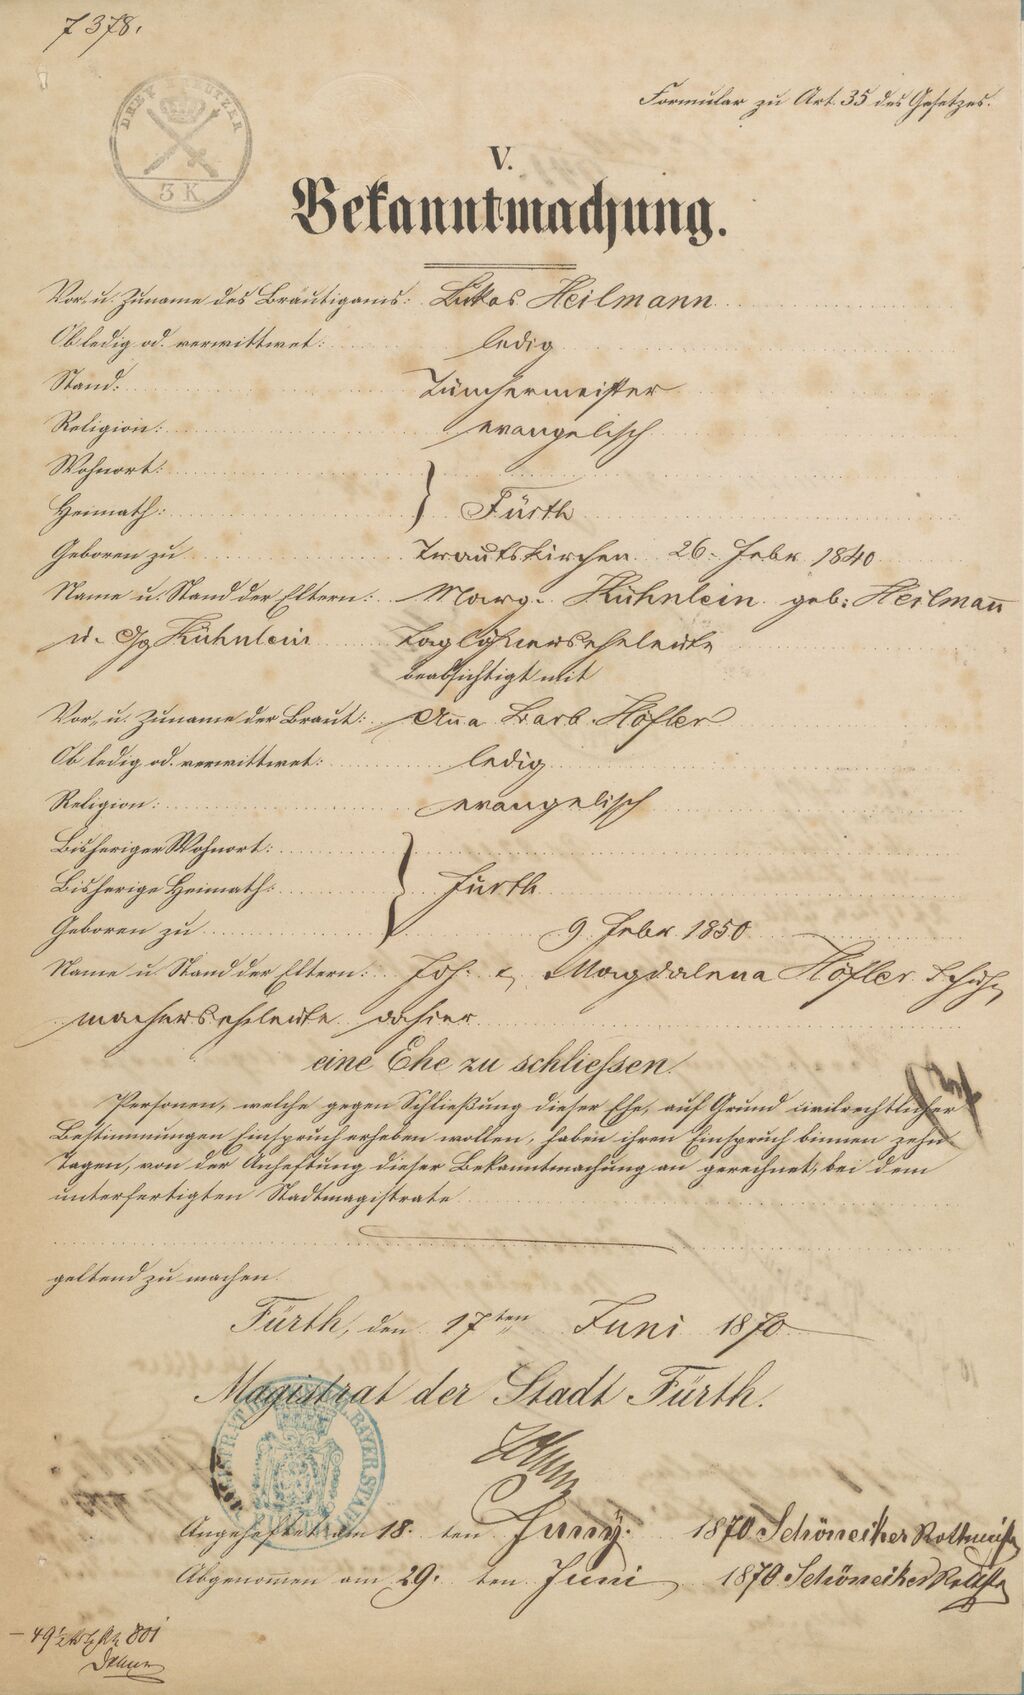 7378.
DREY KREUTZER
3 K.
Formular zu Art. 35 des Gesetzes.
V.
Bekanntmachung.
Vor- u. Zuname des Bräutigams: Lukas Heilmann
Ob ledig od. verwittwet: ledig
Stand: Tünchermeister
Religion: evangelisch
Wohnort:
Heimath: Fürth
Geboren zu Trautskirchen 26. Febr. 1840
Name u. Stand der Eltern: Marg. Kühnlein geb: Heilmann
u. Gg Kühnlein Taglöhnerseheleute
beabsichtigt mit
Vor- u. Zuname der Braut: Anna Barb. Höfler
Ob ledig od. verwittwet: ledig
Religion: evangelisch
Bisheriger Wohnort:
Bisherige Heimath: Fürth
Geboren zu 9 Febr. 1850
Name u. Stand der Eltern: Joh. & Magdalena Höfler Schuh
macherseheleute dahier
eine Ehe zu schliessen.
Personen, welche gegen Schließung dieser Ehe, auf Grund civilrechtlicher
Bestimmungen Einspruch erheben wollen, haben ihren Einspruch binnen zehn
Tagen, von der Anheftung dieser Bekanntmachung an gerechnet, bei dem
unterfertigten Stadtmagistrate
geltend zu machen.
Fürth, den 17ten Juni 1870
Magistrat der Stadt Fürth.
Angeheftet am 18. ten Juny. 1870 Schöneiker Rottmeister
Abgenommen am 29. ten Juni 1870 Schöneiker
801